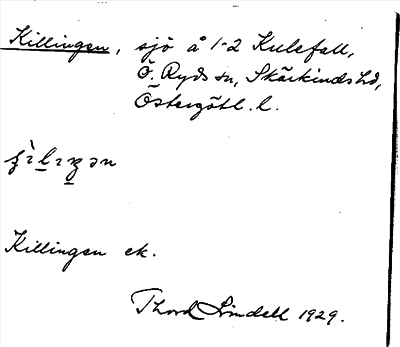 Killingen, sjö å 1-2 Kulefall,
Ö. Ryds sn, Skärkinds hd,
Östergötl. l.
Killingen ek.
Thord Lindell 1929.